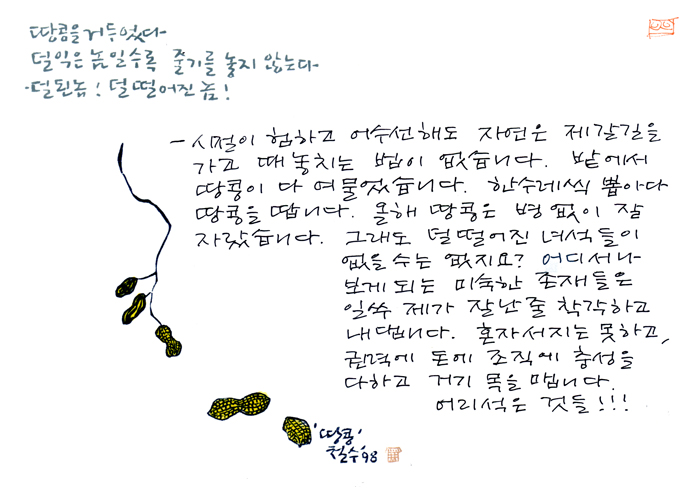 땅콩을 거두었다
덜익은 놈일수록 줄기를 놓지 않는다
덜된놈! 덜떨어진 놈!
- 시절이 험하고 어수선해도 자연은 제갈길을
가고 때 놓치는 법이 없습니다. 밭에서
땅콩이 다 여물었습니다. 한수레씩 뽑아다
땅콩을 땁니다. 올해 땅콩은 병 없이 잘
자랐습니다. 그래도 덜떨어진 녀석들이
없을 수는 없지요? 어디서나
보게 되는 미숙한 존재들은
일쑤 제가 잘난 줄 착각하고
내댑니다. 혼자 서지는 못하고,
권력에 돈에 조직에 충성을
다하고 거기 목을 맵니다.
어리석은 것들!!!
'땅콩'
철수 '98